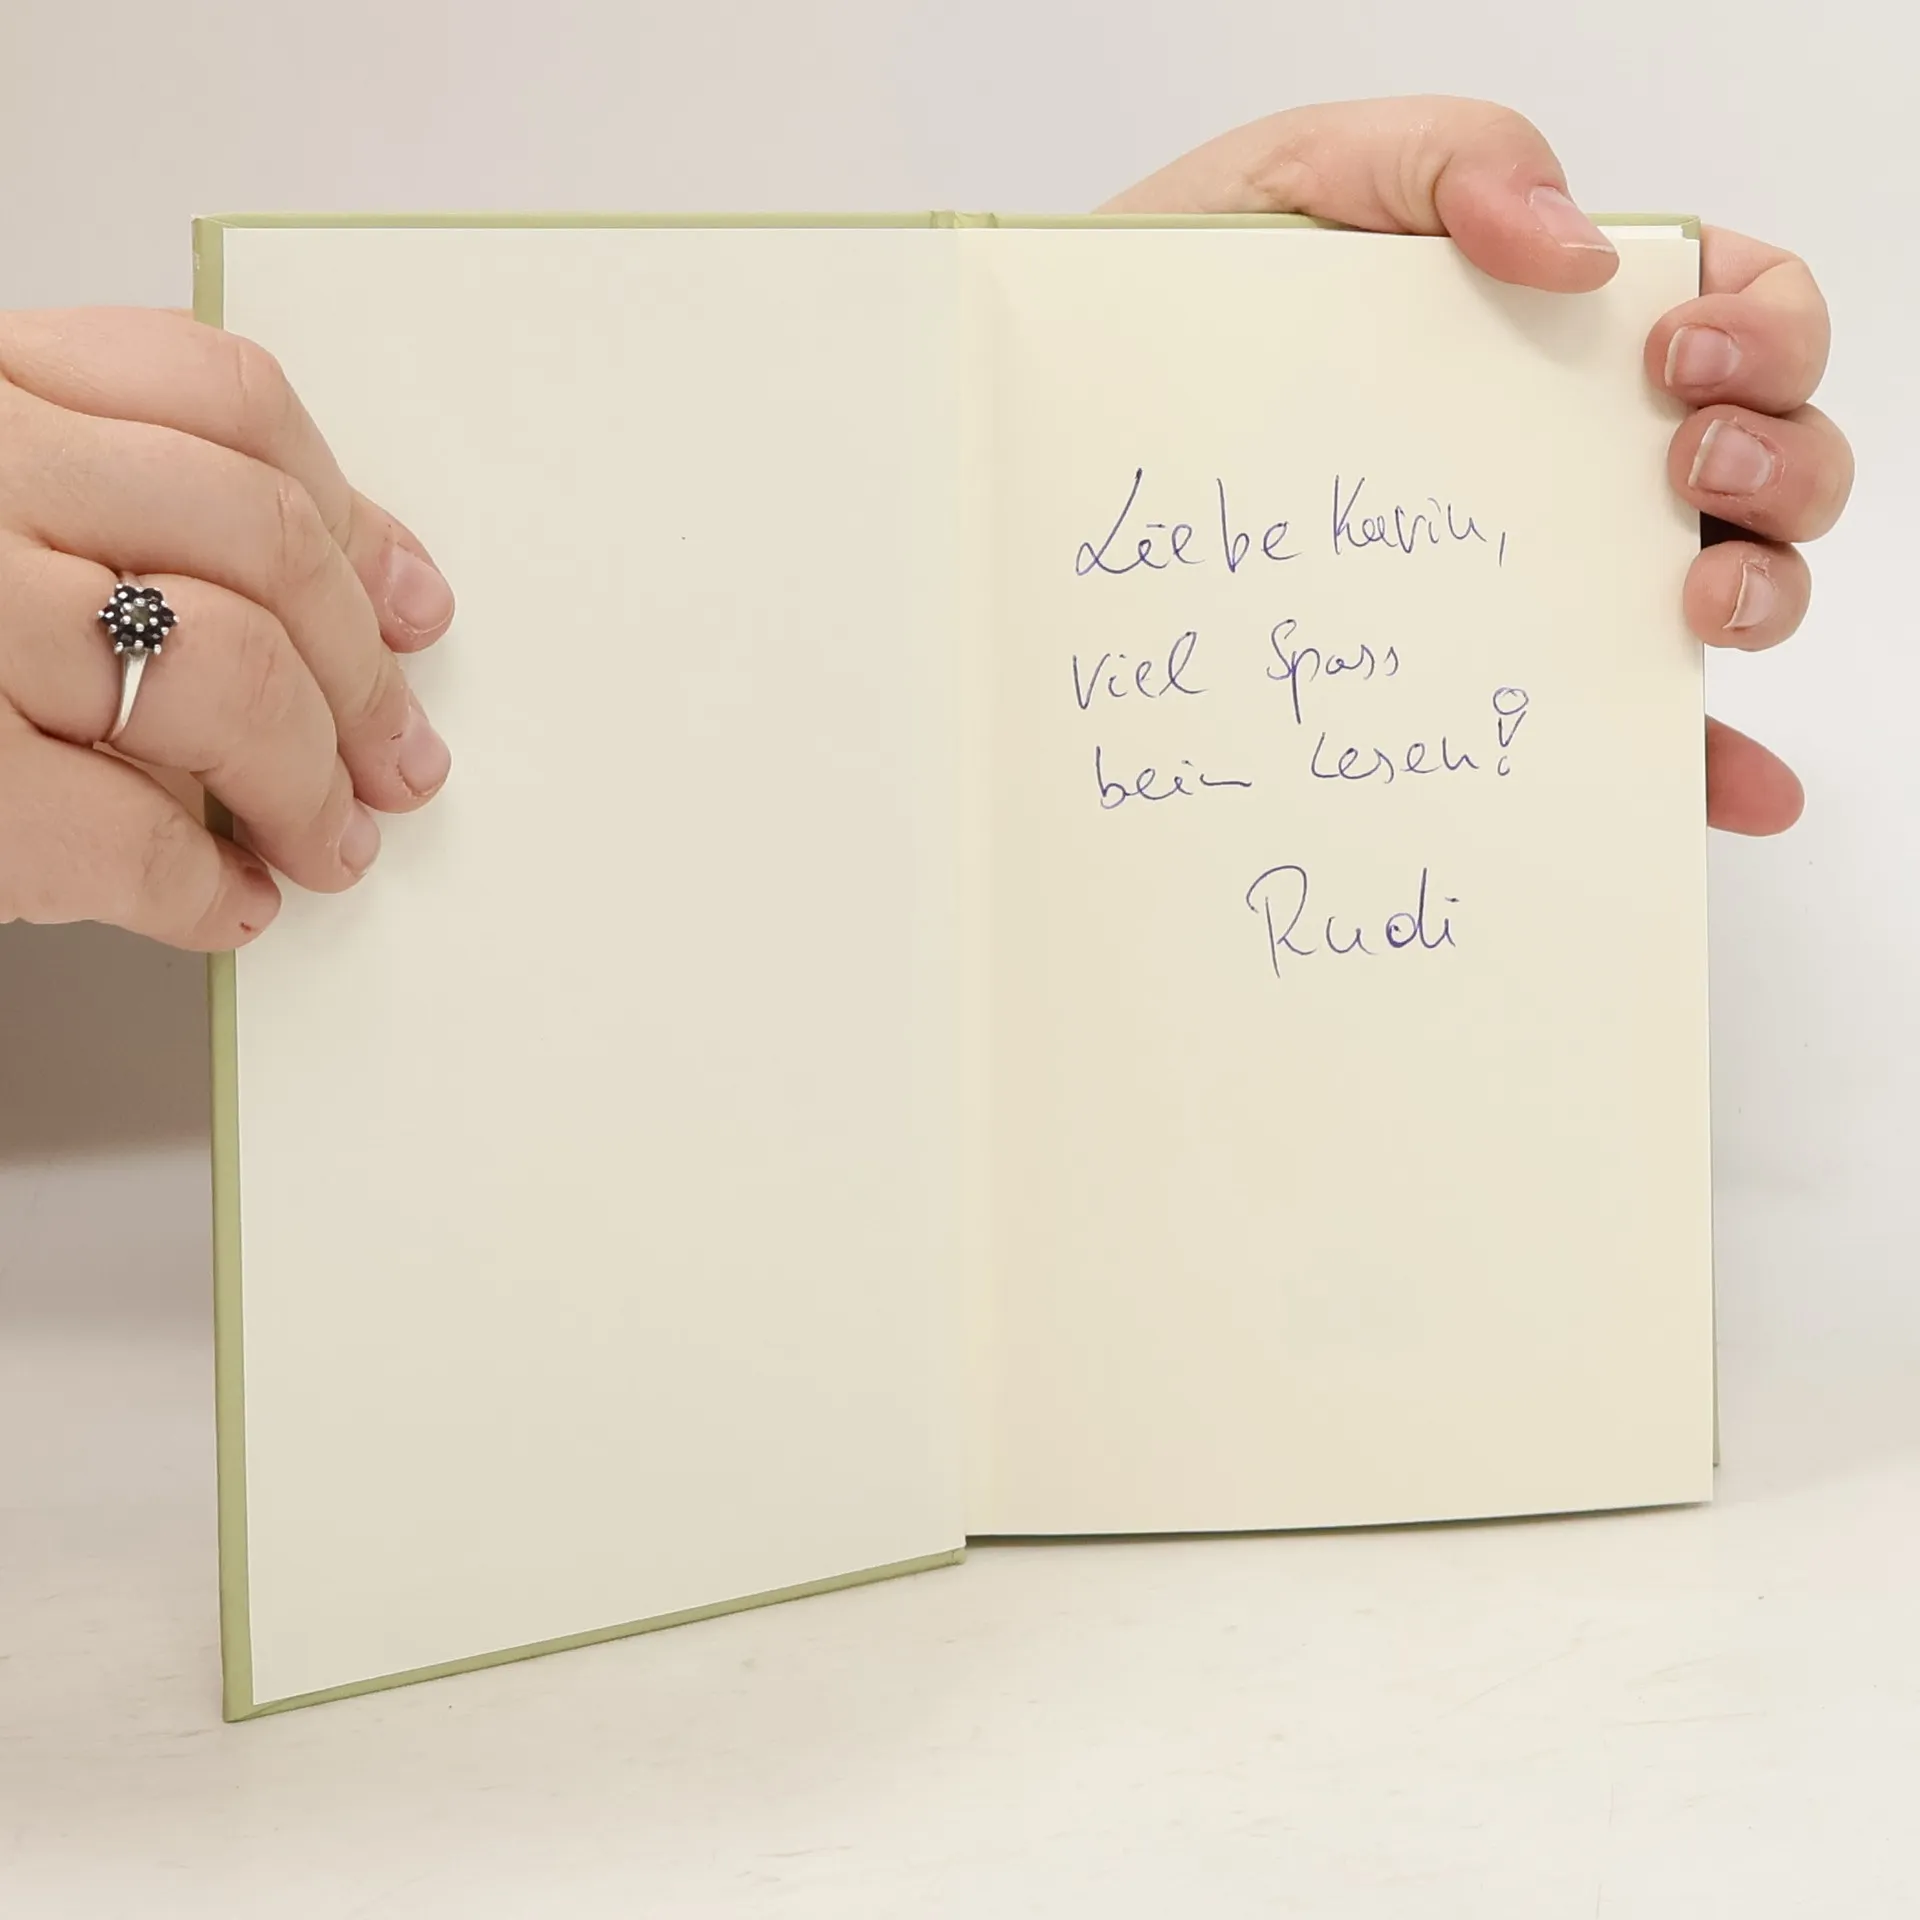 Liebe Karin,
viel Spass
beim Lesen!
Rudi